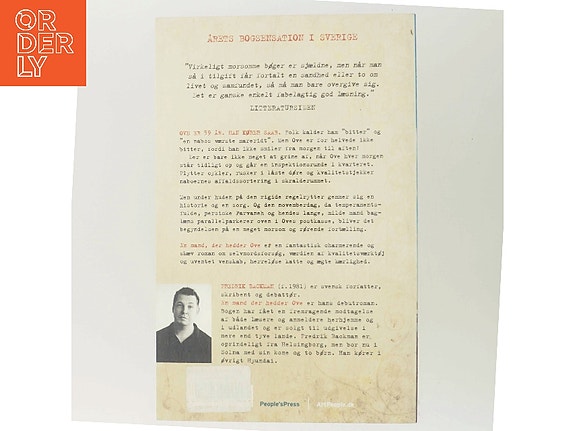 OR
DER
LY
ÅRETS BOGSENSATION I SVERIGE
"Virkeligt morsomme bøger er sjældne, men når man
så i tilgift får fortalt en sandhed eller to om
livet og samfundet, så må man bare overgive sig.
Det er ganske enkelt fabelagtig god læsning."
LITTERATURSIDEN
OVE ER 59 ÅR. HAN KØRER SAAB. Folk kalder ham "bitter" og
"en nabos værste mareridt". Men Ove er for helvede ikke
bitter, fordi han ikke smiler fra morgen til aften!
Der er bare ikke meget at grine af, når Ove hver morgen
står tidligt op og går en inspektionsrunde i kvarteret.
Flytter cykler, rusker i låste døre og kvalitetstjekker
naboernes affaldssortering i skralderummet.
Men under huden på den rigide regelrytter gemmer sig en
historie og en sorg. Og den novemberdag, da temperaments-
fulde, persiske Parvaneh og hendes lange, milde mand bag-
læns parallelparkerer oven i Oves postkasse, bliver det
begyndelsen på en meget morsom og rørende fortælling.
En mand, der hedder Ove er en fantastisk charmerende og
skæv roman om selvmordsforsøg, værdien af kvalitetsværktøj
og uventet venskab, herreløse katte og ægte kærlighed.
FREDRIK BACKMAN (f.1981) er svensk forfatter,
skribent og debattør.
En mand der hedder Ove er hans debutroman.
Bogen har fået en fremragende modtagelse
af både læsere og anmeldere herhjemme og
i udlandet og er solgt til udgivelse i
mere end tyve lande. Fredrik Backman er
oprindeligt fra Helsingborg, men bor nu i
Solna med sin kone og to børn. Han kører i
øvrigt Hyundai.
People'sPress | ArtPeople.dk